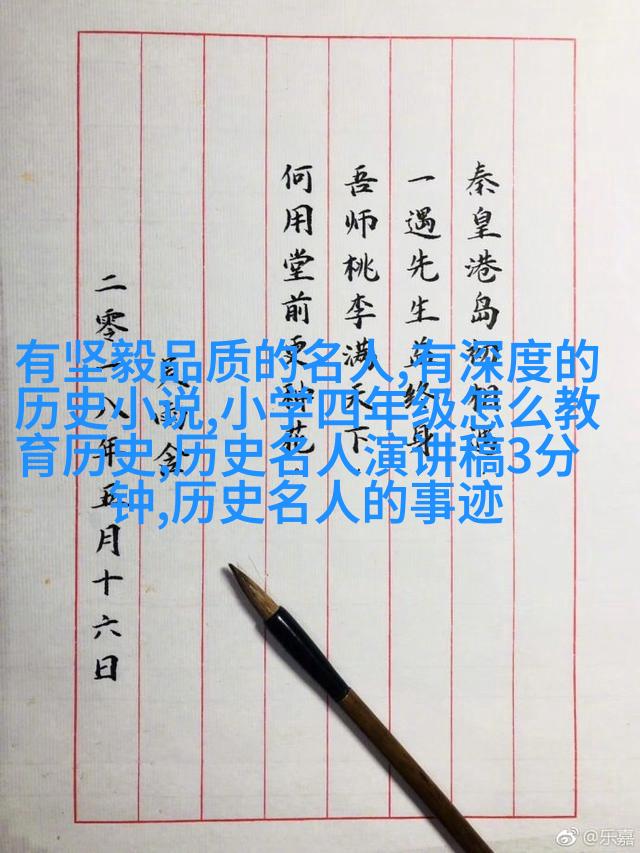 秦皇港岛初相遇
一遇先生益终身
吾师桃李满天下
何用堂前更种花
二零一八年五月十六日
有坚毅品质的名人,有深度的
历史小说,小学四年级怎么教
育历史,历史名人演讲稿3分
钟,历史名人的事迹
@乐嘉